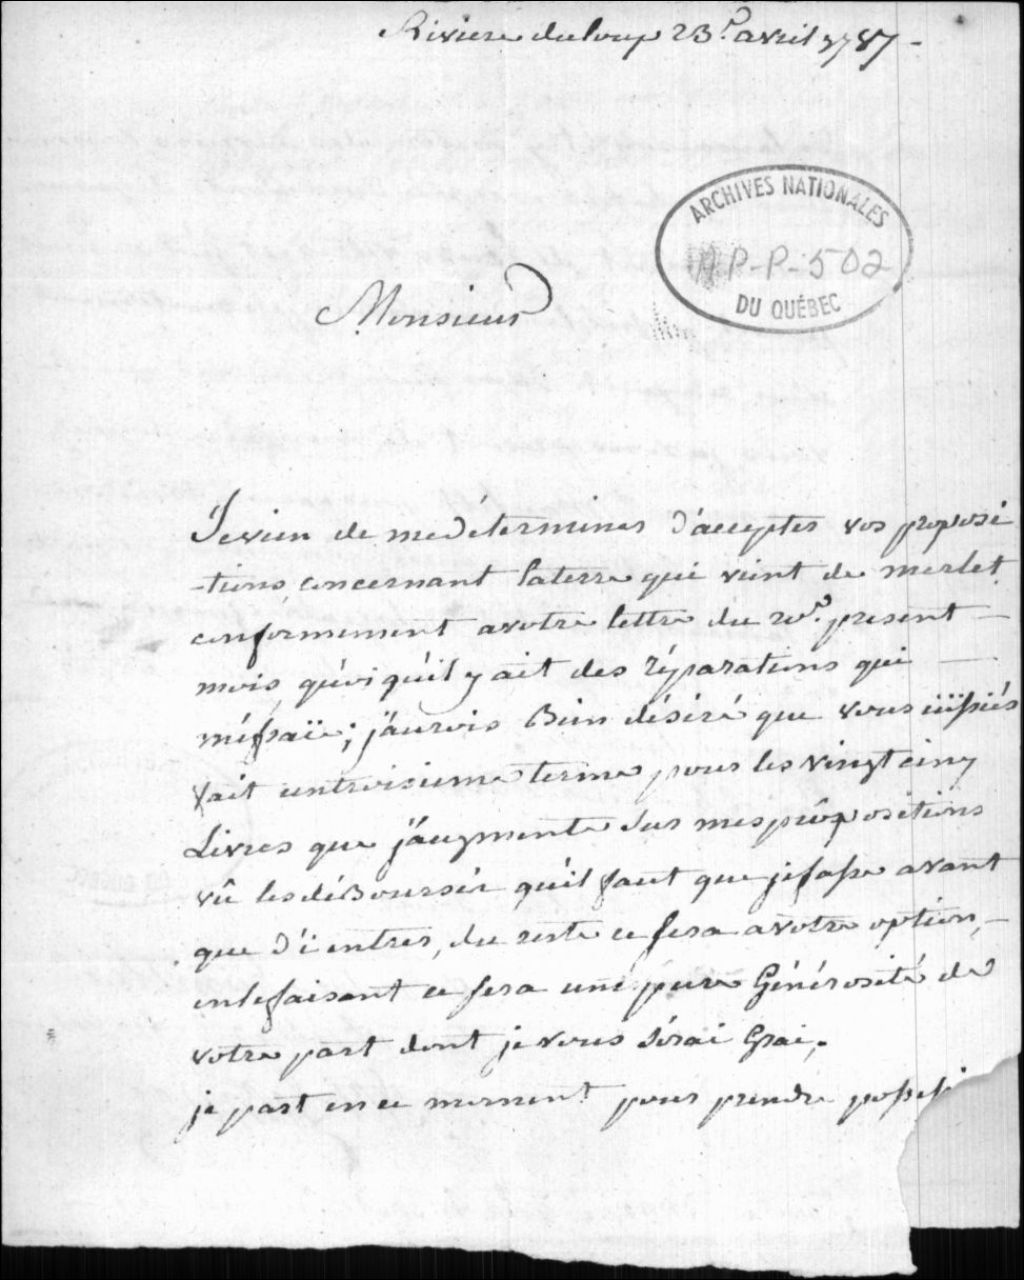 Riviere du loup 23.e avril 1787-
ARCHIVES NATIONALES
P-P-502
DU QUÉBEC
Monsieur
Jevien de me déterminer d'accepter vos proposi
-tions, concernant laterre qui vient de merlet
conformement avotre lettre du 20.e present
mois, quoi quil y ait des réparations qui
j'aurois Bien désiré que vous ussiés
fait untroisieme terme pour les vingt cinq
Livres que j'augmente sur mes propositions
vû les déBoursér quil faut que jefasse avant
que d'i entrer, du reste ce sera avotre option,
enlefaisant ce sera une pure Générosité de
votre part dont je vous sérai Grai,
je part ence moment pour prendre possessi